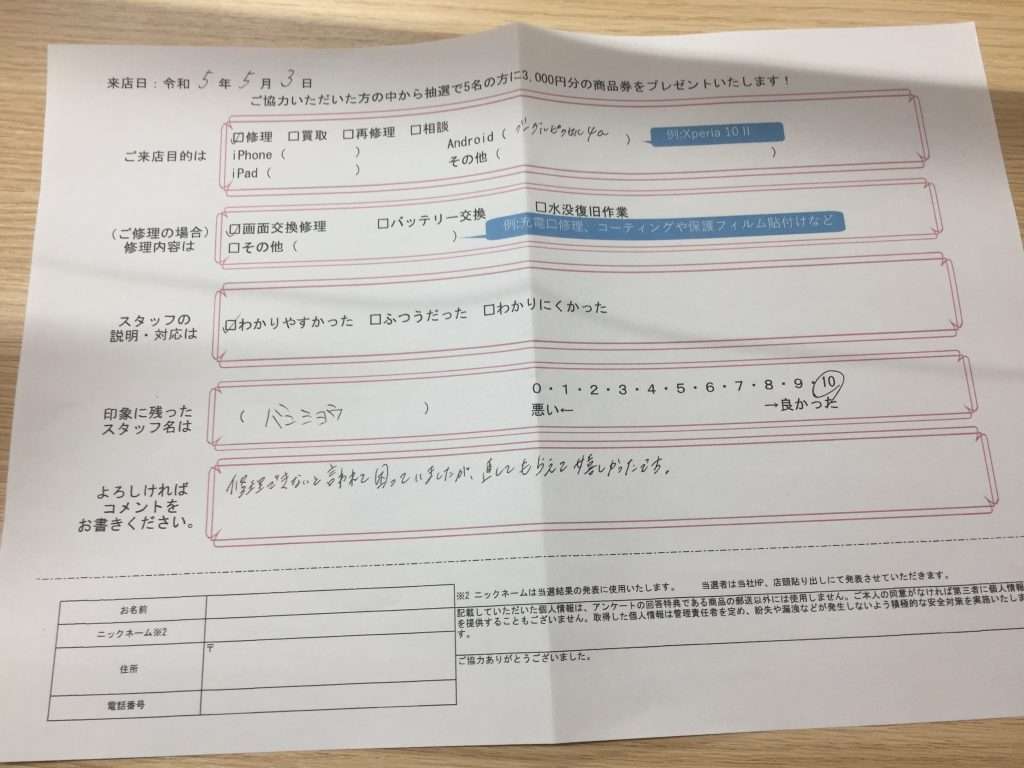 来店日：令和 5 年 5 月 3 日
ご協力いただいた方の中から抽選で5名の方に3,000円分の商品券をプレゼントいたします！
ご来店目的は
☑修理 □買取 □再修理 □相談
iPhone（ ）
Android（グーグルピクセル4a ）
例:Xperia 10 II
iPad（ ）
その他（ ）
（ご修理の場合）
修理内容は
☑画面交換修理 □バッテリー交換 □水没復旧作業
□その他（ ）
例:充電口修理、コーティングや保護フィルム貼付けなど
スタッフの
説明・対応は
☑わかりやすかった □ふつうだった □わかりにくかった
印象に残った
スタッフ名は
（ バンショウ ）
0・1・2・3・4・5・6・7・8・9・10
悪い← →良かった
よろしければ
コメントを
お書きください。
修理できないと言われて困っていましたが、直してもらえて嬉しかったです。
お名前
ニックネーム※2
住所
〒
電話番号
※2 ニックネームは当選結果の発表に使用いたします。 当選者は当社HP、店頭貼り出しにて発表させていただきます。
記載していただいた個人情報は、アンケートの回答特典である商品の郵送以外には使用しません。ご本人の同意がなければ第三者に個人情報
を提供することもございません。取得した個人情報は管理責任者を定め、紛失や漏洩などが発生しないよう積極的な安全対策を実施いたしま
す。
ご協力ありがとうございました。